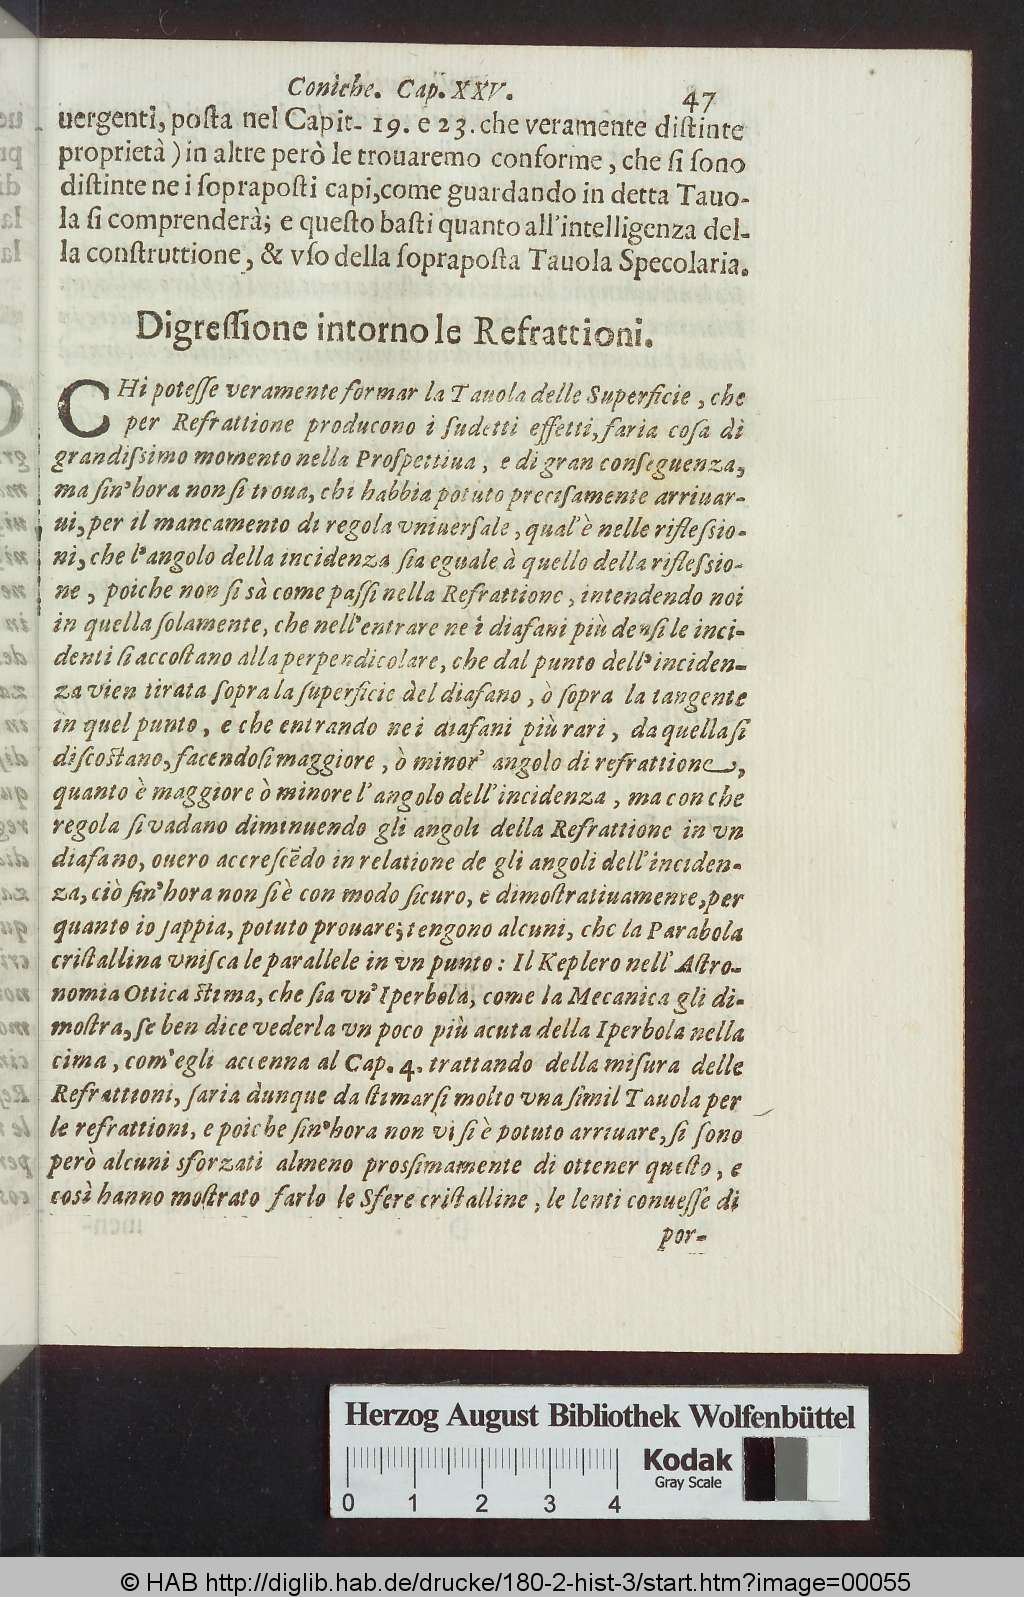 Coniche. Cap. XXV. 47
uergenti, poſta nel Capit. 19. e 23. che veramente diſtinte
proprietà) in altre però le trouaremo conforme, che ſi ſono
diſtinte ne i ſopraposti capi, come guardando in detta Tauo-
la ſi comprenderà; e queſto baſti quanto all'intelligenza del-
la conſtruttione, & vſo della ſopraposta Tauola Specolaria.
Digreſſione intorno le Refrattioni.
CHi poteſſe veramente formar la Tauola delle Superficie, che
per Refrattione producono i ſudetti effetti, ſaria coſa di
grandiſsimo momento nella Proſpettiua, e di gran conſeguenza,
ma ſin'hora non ſi troua, chi habbia potuto preciſamente arriuar-
ui, per il mancamento di regola vniuerſale, qual'è nelle rifleſsio-
ni, che l'angolo della incidenza ſia eguale à quello della rifleſsio-
ne, poiche non ſi sà come paſſi nella Refrattione, intendendo noi
in quella ſolamente, che nell'entrare ne i diafani più denſi le inci-
denti ſi accoſtano alla perpendicolare, che dal punto dell'inciden-
za vien tirata ſopra la ſuperficie del diafano, ò ſopra la tangente
in quel punto, e che entrando ne i diafani più rari, da quella ſi
diſcoſtano, facendoſi maggiore, ò minor' angolo di refrattione,
quanto è maggiore ò minore l'angolo dell'incidenza, ma con che
regola ſi vadano diminuendo gli angoli della Refrattione in vn
diafano, ouero accreſcẽdo in relatione de gli angoli dell'inciden-
za, ciò ſin'hora non ſi è con modo ſicuro, e dimoſtratiuamente, per
quanto io ſappia, potuto prouare; tengono alcuni, che la Parabola
criſtallina vniſca le parallele in vn punto: Il Keplero nell' Aſtro-
nomia Ottica ſtima, che ſia vn' Iperbola, come la Mecanica gli di-
moſtra, ſe ben dice vederla vn poco più acuta della Iperbola nella
cima, com'egli accenna al Cap. 4. trattando della miſura delle
Refrattioni, ſaria dunque da ſtimarſi molto vna ſimil Tauola per
le refrattioni, e poiche ſin'hora non vi ſi è potuto arriuare, ſi ſono
però alcuni sforzati almeno proſsimamente di ottener queſto, e
così hanno moſtrato farlo le Sfere criſtalline, le lenti conueſſe di
por-
Herzog August Bibliothek Wolfenbüttel
Kodak
Gray Scale
0 1 2 3 4
© HAB http://diglib.hab.de/drucke/180-2-hist-3/start.htm?image=00055